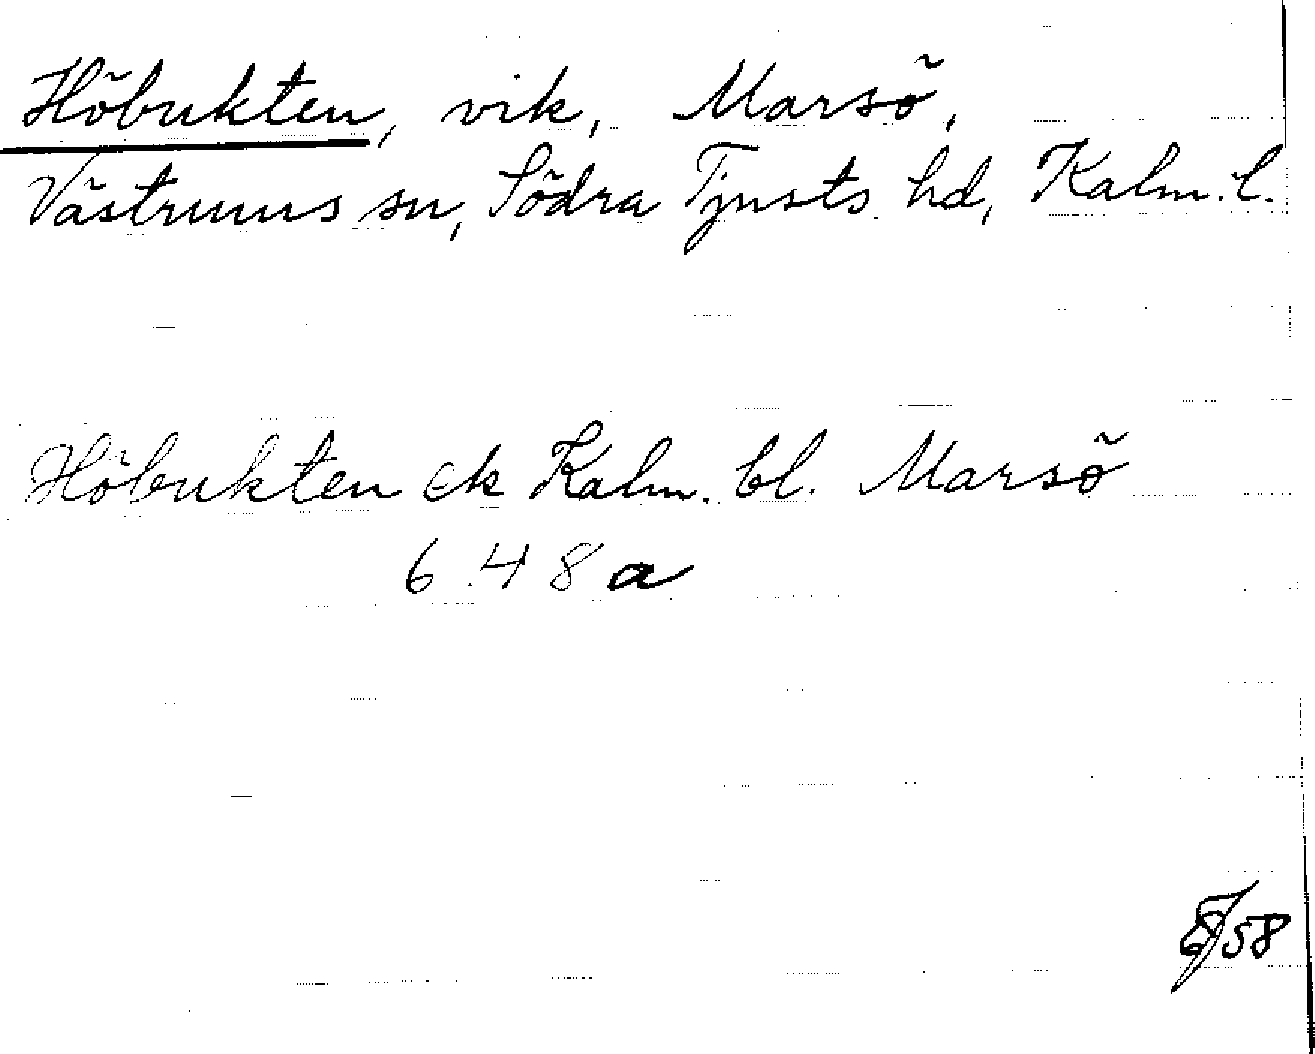 Höbukten, vik, Marsö,
Västrums sn, Södra Tjusts hd, Kalm. l.
Höbukten ek Kalm. bl. Marsö
6 48 a
58